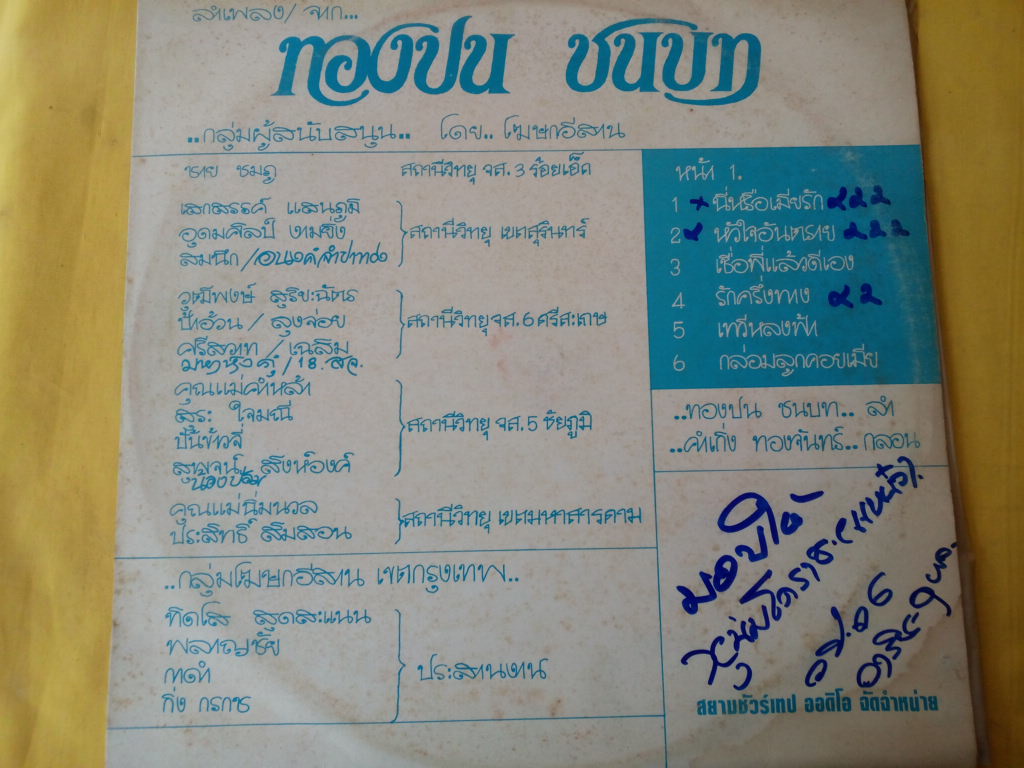 ลำเพลง/จาก...
ทองปน ชนบท
..กลุ่มผู้สนับสนุน.. โดย.. โฆษกอีสาน
ชาย ชมภู สถานีวิทยุ จส. 3 ร้อยเอ็ด
เสกสรรค์ แสนภูมิ
อุดมศิลป์ งามยิ่ง
สมนึก /
สถานีวิทยุ เขตสุรินทร์
วุฒิพงษ์ สุริยะฉัตร
ป้าอ้วน / ลุงจ่อย
ศรีสวาท / เฉลิม
/ 18. สจ.
สถานีวิทยุ จส. 6 ศรีสะเกษ
คุณแม่คำหล้า
สุระ ใจมณี
ปั้นข้าวจี่
สุพจน์ สิงห์องค์
สถานีวิทยุ จส. 5 ชัยภูมิ
คุณแม่นิ่มนวล
ประสิทธิ์ สีมสอน
สถานีวิทยุ เขตมหาสารคาม
..กลุ่มโฆษกอีสาน เขตกรุงเทพ..
ทิดโส สุดสะแนน
พลาญชัย
กาดำ
กิ่ง กราช
ประสานงาน
หน้า 1.
1 + นี่หรือเมียรัก ๔๒๒
2 หัวใจอันตราย ๔๒๒
3 เชื่อพี่แล้วดีเอง
4 รักครึ่งทาง ๔๒
5 เทวีหลงฟ้า
6 กล่อมลูกคอยเมีย
..ทองปน ชนบท.. ลำ
..คำเกิ่ง ทองจันทร์.. กลอน
มอบให้
สยามชัวร์เทป ออดิโอ จัดจำหน่าย